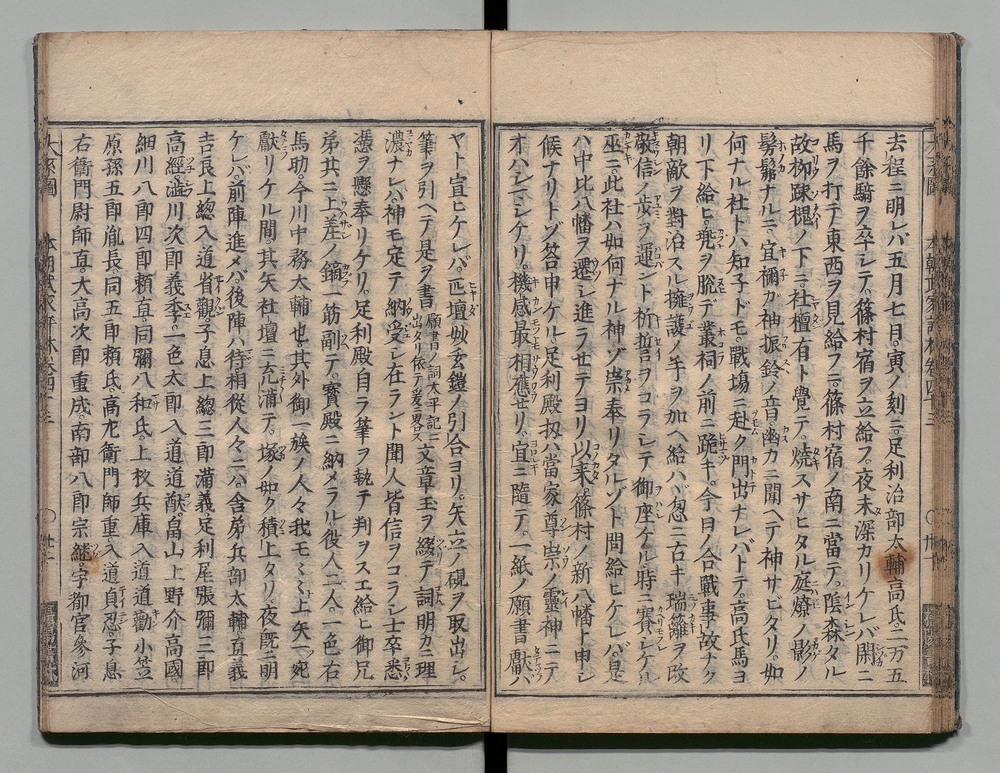 去程ニ明レバ五月七日。寅ノ刻ニ。足利治部太輔高氏。二万五
千餘騎ヲ卒シテ。篠村宿ヲ立給フ。夜未深カリケレバ。閑ニ
馬ヲ打テ東西ヲ見給フニ。篠村宿ノ南ニ當テ。陰森タル
故柳踈槐ノ下ニ。社檀有ト覺テ。燒スサヒタル庭燎ノ影ノ
髣髴ナルニ。宜禰カ袖振鈴ノ音。幽カニ聞ヘテ神サヒタリ。如
何ナル社トハ知子ドモ。戰塲ニ赴ク門出ナレバトテ。高氏馬ヨ
リ下給ヒ。兜ヲ脱テ叢祠ノ前ニ跪キ。今日ノ合戰事故ナク
朝敵ヲ對治スル擁護ノ手ヲ加ヘ給ハヾ。忽ニ古キ瑞籬ヲ改
敬信ノ歩ヲ運ント。祈誓ヲコラシテ御座ケル。時ニ賽シケル
巫ニ。此社ハ如何ナル神ゾ崇奉リタルゾト問給ヒケレバ。是
ハ中比八幡ヲ遷シ進ラセテヨリ以來。篠村ノ新八幡ト申シ
候ナリトゾ答申ケル。足利殿扨ハ當家尊崇ノ靈神ニテ
オハシマシケリ。機感最相應セリ。宜ニ隨テ。一紙ノ願書獻ハ
ヤト宣ヒケレバ。匹壇妙玄鎧ノ引合ヨリ。矢立ノ硯ヲ取出シ。
筆ヲ引ヘテ是ヲ書 願書ノ詞太平記ニ出タリ依テ爰ニ畧ス 文章玉ヲ綴テ詞明カニ理
濃ナレハ。神モ定テ納受シ在ラント。聞人皆信ヲコラシ。士卒悉
憑ヲ懸奉リケリ。足利殿自ラ筆ヲ執テ判ヲスエ給ヒ。御兄
弟共ニ上差ノ鏑一筋副テ。寳殿ニ納メラル。役人二人。一色右
馬助。今川中務太輔也。其外御一族ノ人々。我モ〳〵ト上矢一宛
獻リケル間。其矢社壇ニ充滿テ。塚ノ如ク積上タリ。夜既ニ明
ケレバ。前陣進メハ。後陣ハ待。相從人々ニハ。舎弟兵部太輔直義
吉良上總入道省觀。子息上總三郎滿義。足利尾張彌三郎
高經。澁川次郎義季。一色太郎入道道猷。畠山上野介高國
細川八郎四郎頼直。同彌八和氏。上杦兵庫入道道勸。小笠
原孫五郎胤長。同五郎頼氏。高尤衛門師重入道貞忍。子息
右衛門尉師直。大高次郎重成。南部八郎宗繼。宇都宮参河